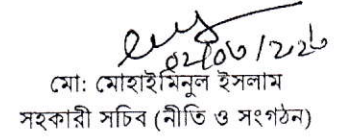 মো: মোহাইমিনুল ইসলাম
সহকারী সচিব (নীতি ও সংগঠন)